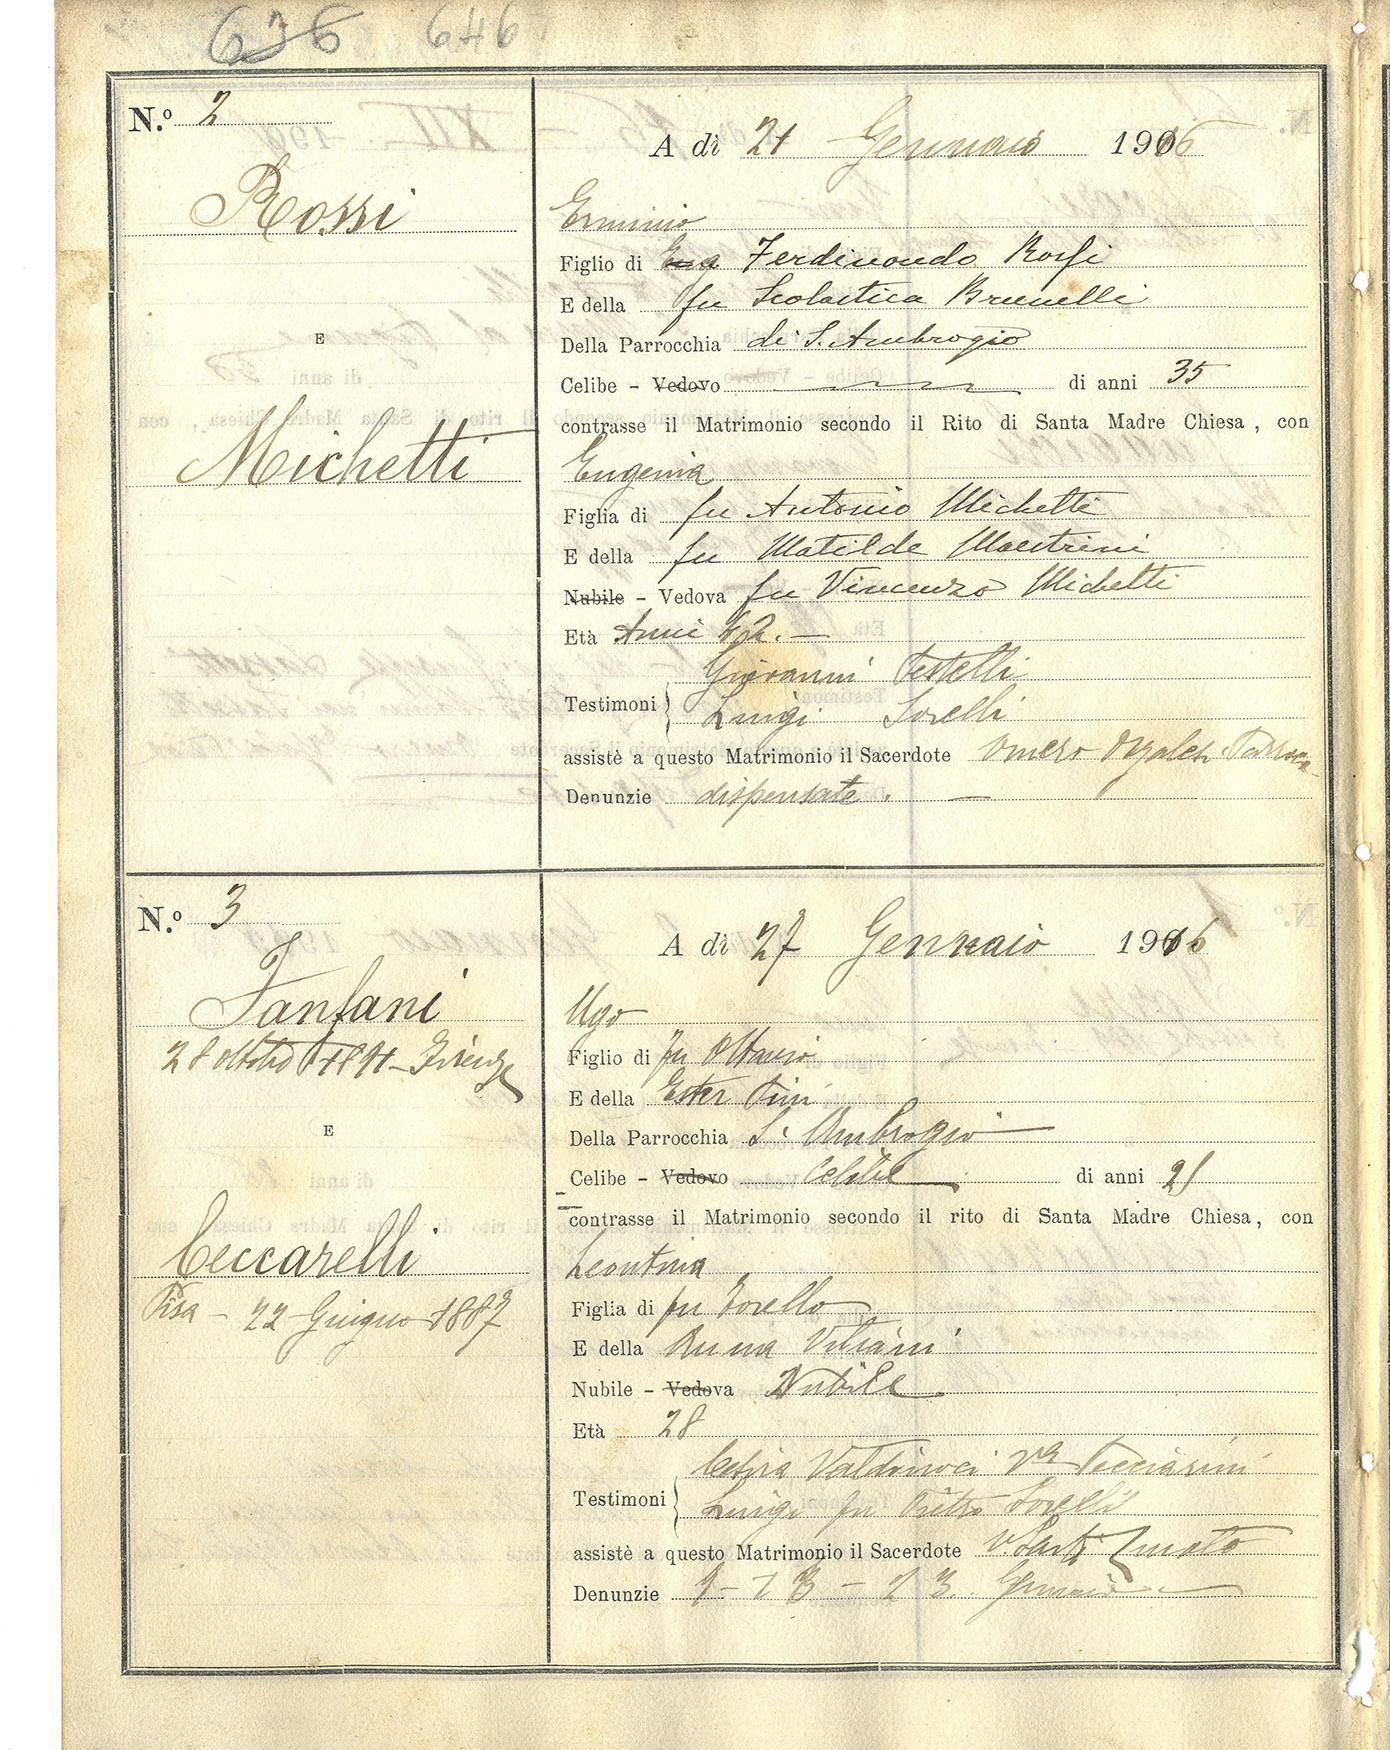 636 646
N.º 2
A dì 21 Gennaio 1916
Rossi
E
Michetti
Erminio
Figlio di Eug Ferdinando Rossi
E della fu Scolastica Brunelli
Della Parrocchia di S. Ambrogio
Celibe - Vedovo di anni 35
contrasse il Matrimonio secondo il Rito di Santa Madre Chiesa, con
Eugenia
Figlia di fu Antonio Michetti
E della fu Matilde Maestrini
Nubile - Vedova fu Vincenzo Michetti
Età Anni 42. —
Testimoni Giovanni Testelli
Luigi Sorelli
assistè a questo Matrimonio il Sacerdote Omero Parroco
Denunzie dispensate. —
N.º 3
A dì 27 Gennaio 1916
Fanfani
28 Ottobre 1894 - Firenze
E
Ceccarelli
Pisa - 22 Giugno 1887
Ugo
Figlio di fu Ottavio
E della Ester Pini
Della Parrocchia S. Ambrogio
Celibe - Vedovo Celibe di anni 21
contrasse il Matrimonio secondo il rito di Santa Madre Chiesa, con
Leontina
Figlia di fu Torello
E della Anna Viviani
Nubile - Vedova Nubile
Età 28
Testimoni
Luigi fu Pietro Sorelli
assistè a questo Matrimonio il Sacerdote
Denunzie Gennaio